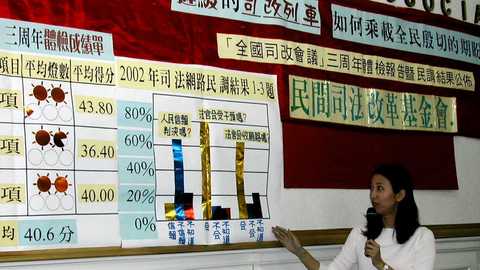 的司改列車
SOCIA
如何乘載全民殷切的期盼
「全國司改會議」三周年體檢報告暨民調結果公佈
民間司法改革基金會
三周年體檢成績單
項目 平均燈數 平均得分
項 43.80
項 36.40
項 40.00
均 40.6 分
2002年司法網路民調結果1-3題
80%
60%
40%
20%
0%
人民信賴判決嗎?
法官會收紅包嗎?
信賴
不信賴
不知道
會
不會
不知道
會
不會
不知道